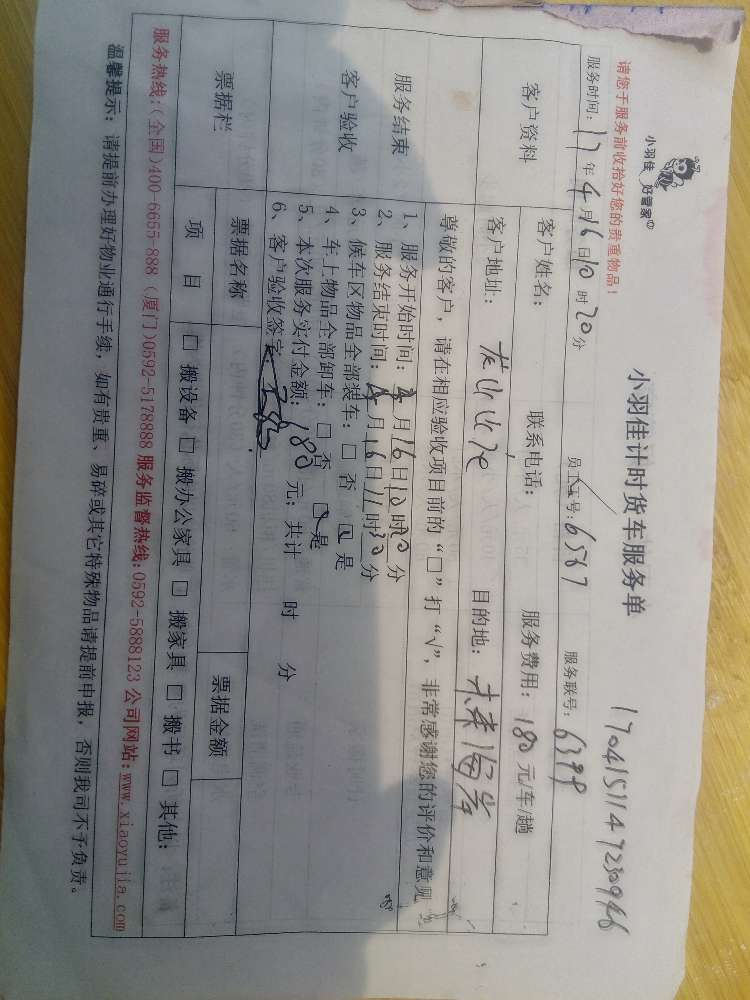 小羽佳 好管家
小羽佳计时货车服务单
1704151147230946
请您于服务前收拾好您的贵重物品！
服务时间：17年4月16日10时20分 员工工号：6587 服务联号：6399
客户资料
客户姓名： 联系电话： 服务费用：180元/车/趟
客户地址： 目的地：未来海岸
尊敬的客户，请在相应验收项目前的“□”打“√”，非常感谢您的评价和意见
服务结束
客户验收
1、服务开始时间：4月16日10时20分
2、服务结束时间：4月16日11时30分
3、候车区物品全部装车：□ 否 □ 是
4、车上物品全部卸车：□ 否 □ 是
5、本次服务实付金额：180元；共计 时 分
6、客户验收签字
票据栏
票据名称 票据金额
项 目 □ 搬设备 □ 搬办公家具 □ 搬家具 □ 搬书 □ 其他：
服务热线：(全国)400-6655-888 (厦门)0592-5178888 服务监督热线：0592-5888123 公司网站：www.xiaoyujia.com
温馨提示：请提前办理好物业通行手续，如有贵重、易碎或其它特殊物品请提前申报，否则我司不予负责。